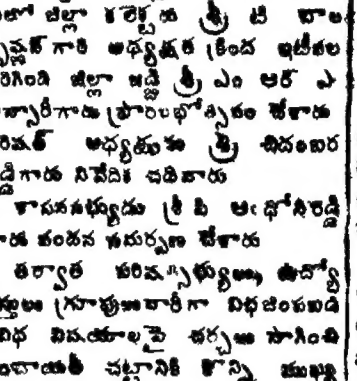 లో జిల్లా కలెక్టరు శ్రీ టి బాల
గారి అధ్యక్షత క్రింద ఇటీవల
రిగింది జిల్లా జడ్జి శ్రీ ఎం ఆర్ ఎ
న్సారీగారు ప్రారంభోత్సవం చేశారు
రిషత్ అధ్యక్షుడు శ్రీ చిదంబర
డ్డిగారు నివేదిక చదివారు
శాసనసభ్యుడు శ్రీ పి ఆంథోనిరెడ్డి
రు వందన సమర్పణ చేశారు
తర్వాత పరిషత్సభ్యులు, ఉద్యో
స్తులు గ్రూపులవారీగా విభజింపబడి
విధ విషయాలపై చర్చలు సాగించి
చాయతీ చట్టానికి కొన్ని ముఖ్య